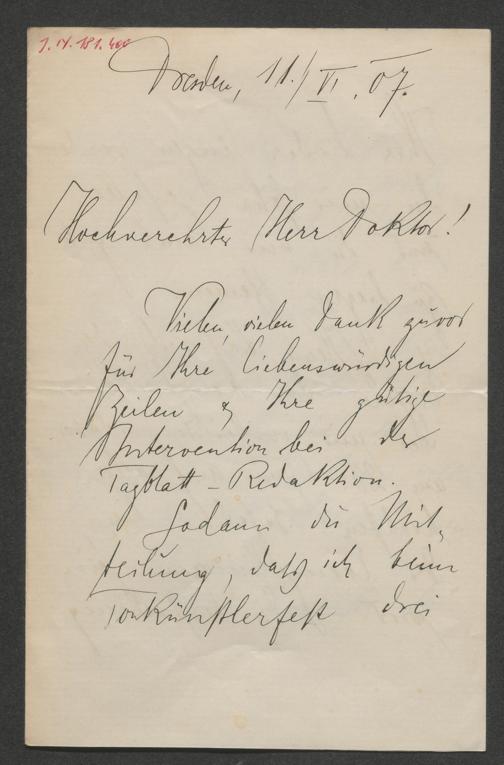 J. N. 181.400
Dresden, 11./VI. 07.
Hochverehrter Herr Doktor!
Vielen, vielen Dank zuvor
für Ihre liebenswürdigen
Zeilen & Ihre gütige
Intervention bei der
Tagblatt-Redaktion.
Sodann die Mit-
teilung, daß ich beim
Tonkünstlerfest drei